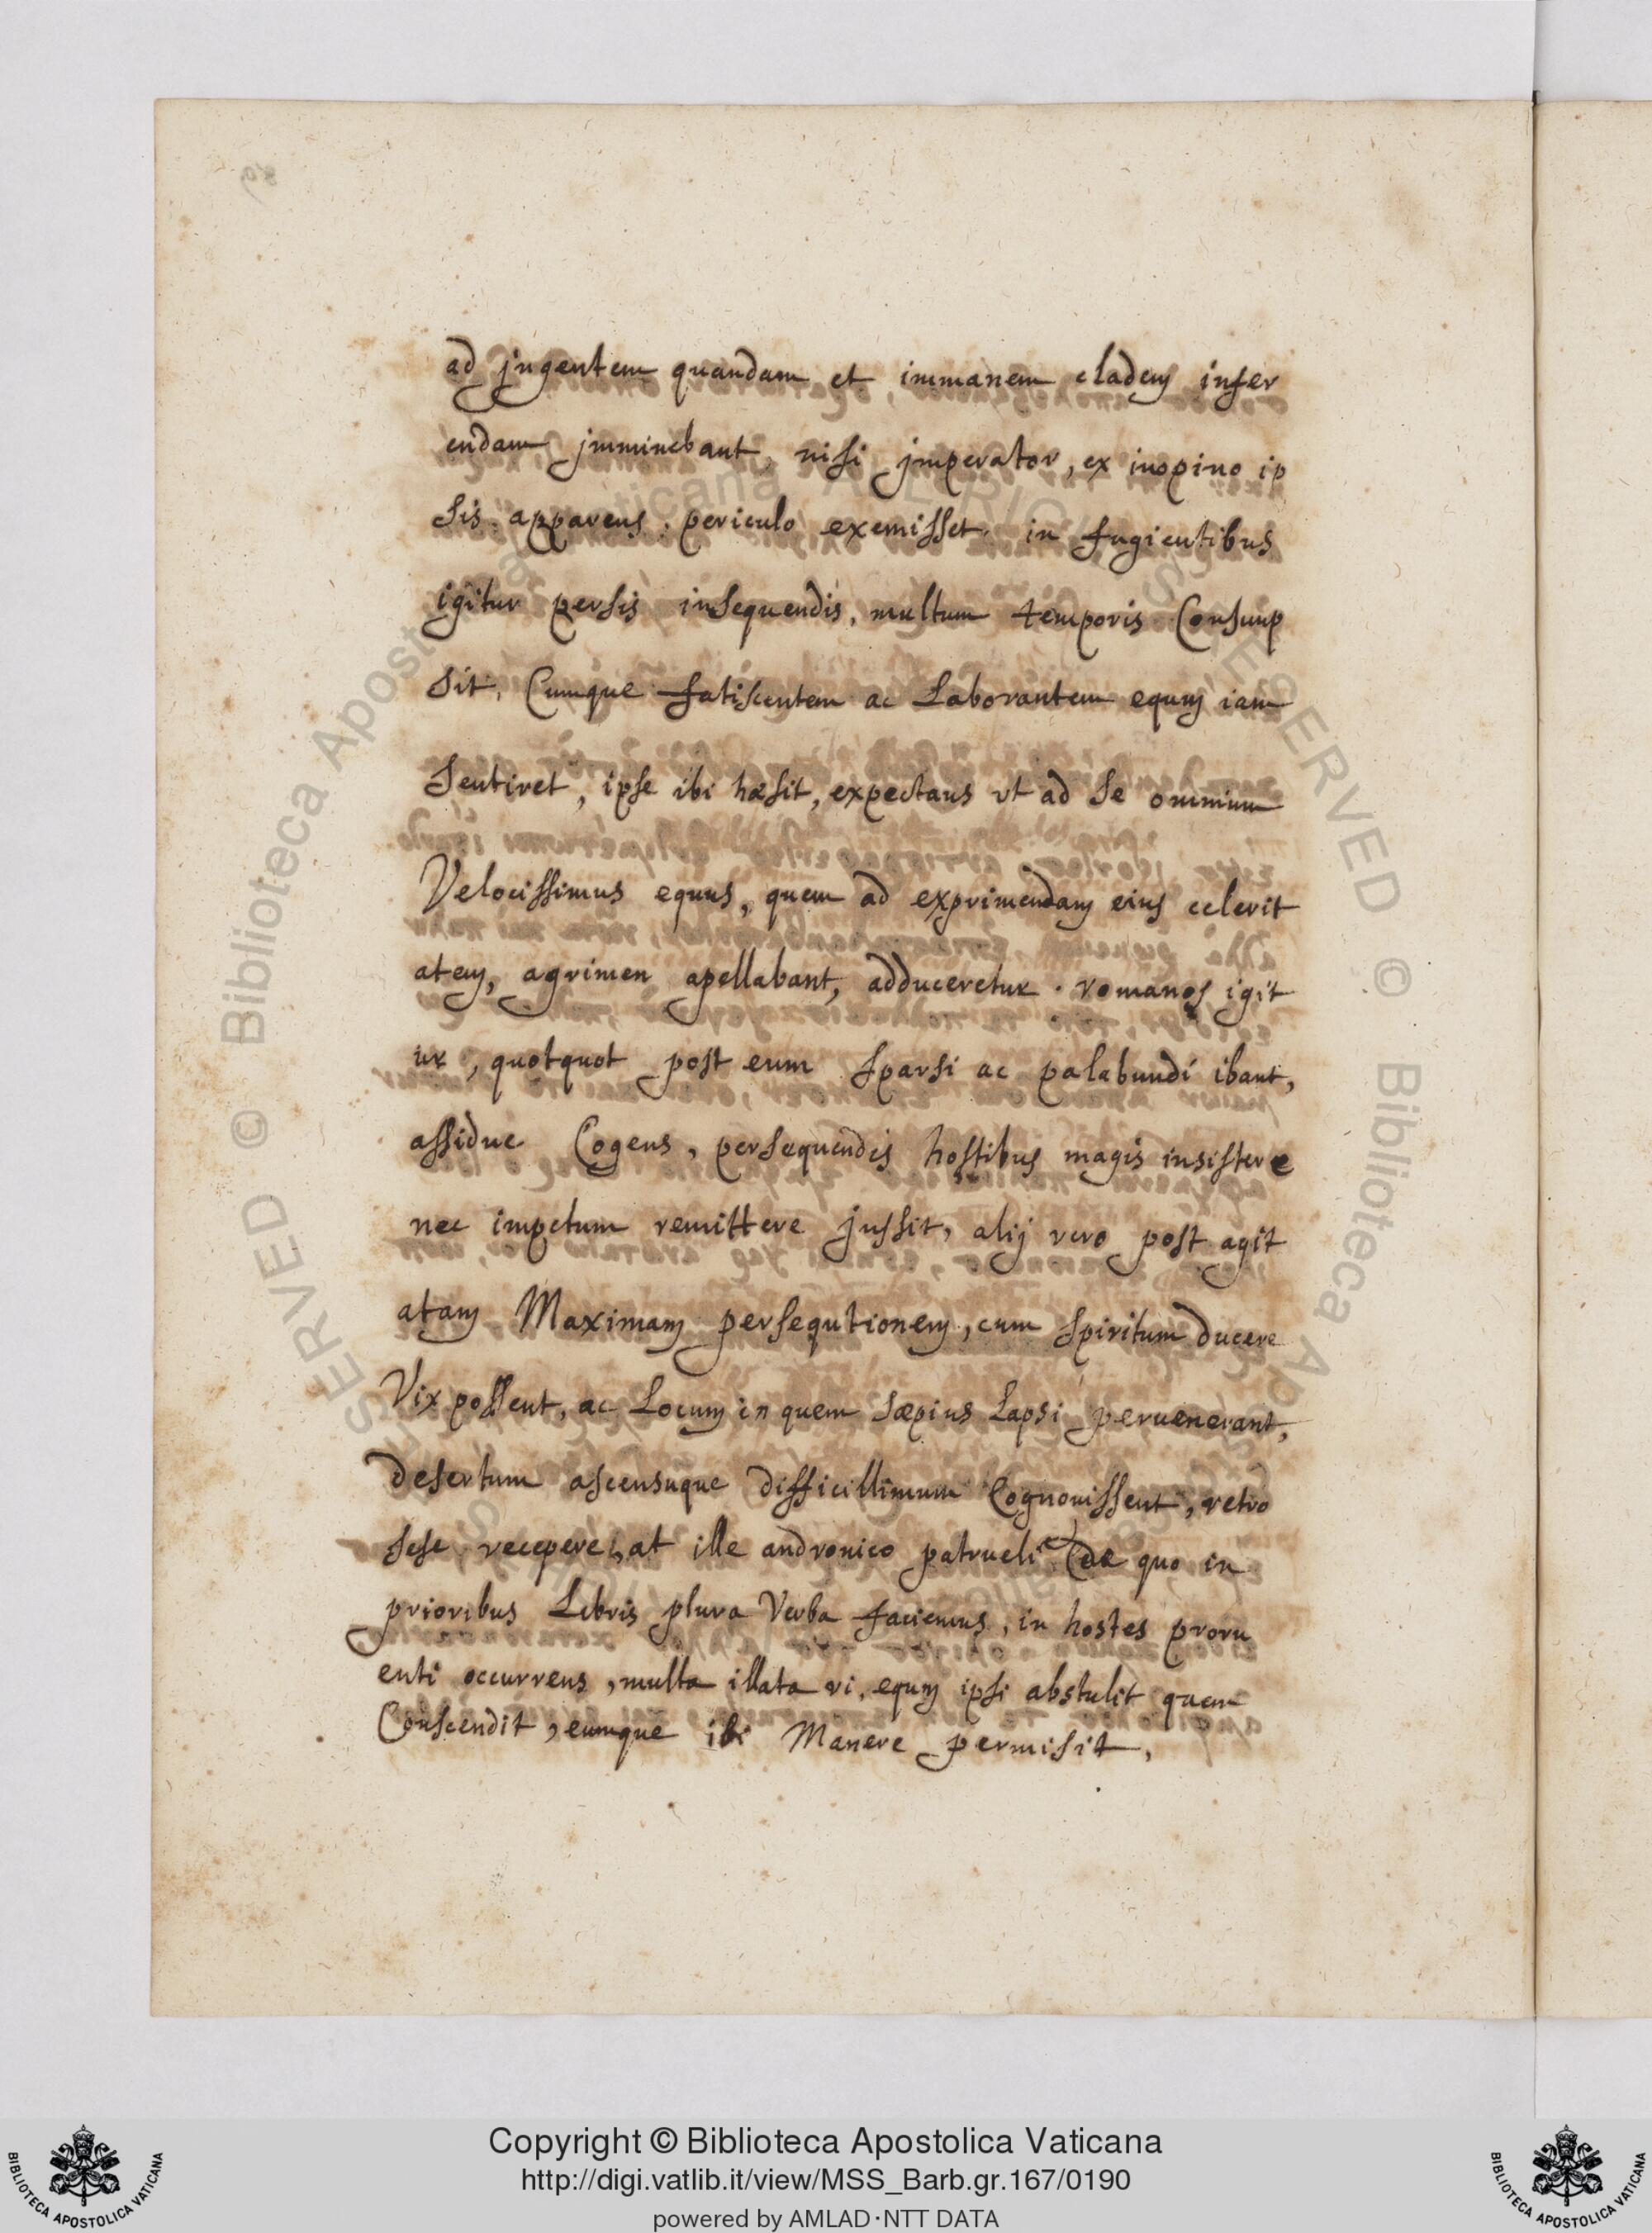 ad jngentem quandam et immanem cladem infer
endam jmminebant, nisi jmperator, ex inopino ip
sis apparens. periculo exemisset. in fugientibus
igitur persis insequendis, multum temporis Consump
sit, Cumque fatiscentem ac Laborantem equum iam
Sentiret, ipse ibi hæsit, expectans vt ad se omnium
Velocissimus equus, quem ad exprimendam eius celerit
atem, agrimen apellabant, adduceretur. romanos igit
ur, quotquot post eum sparsi ac palabundi ibant,
assidue Cogens, persequendis hostibus magis insistere
nec impetum remittere jussit, alij vero post agit
atam Maximam persequtionem, cum spiritum ducere
Vix possent, ac Locum in quem sæpius Lapsi peruenerant,
desertum ascensuque difficillimum Cognouissent, retro
sese recepere, at ille andronico patrueli (de quo in
prioribus Libris plura Verba faciemus, in hostes proru
enti occurrens, multa illata vi, equum ipsi abstulit quem
Conscendit, eumque ibi Manere permisit,
Copyright © Biblioteca Apostolica Vaticana
http://digi.vatlib.it/view/MSS_Barb.gr.167/0190
powered by AMLAD·NTT DATA
BIBLIOTECA APOSTOLICA VATICANA
BIBLIOTECA APOSTOLICA VATICANA